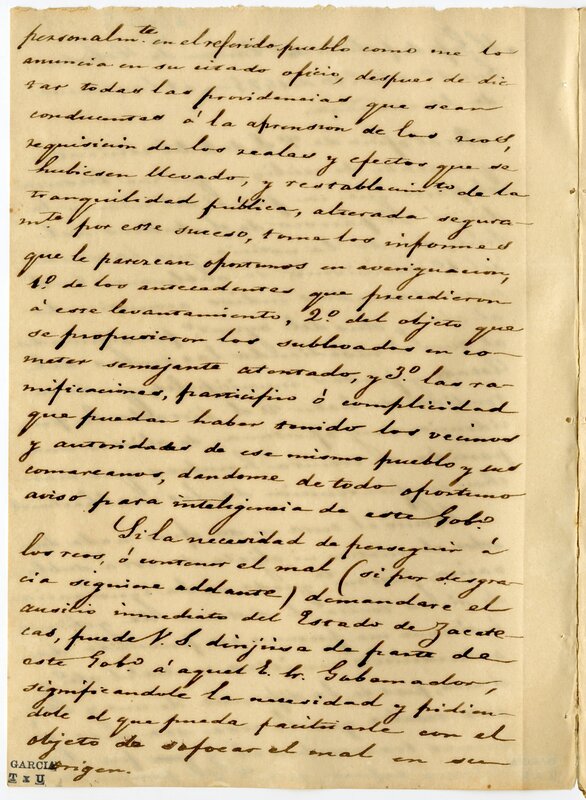 personalm.te en el referido pueblo como me lo
anuncia en su citado oficio, despues de dic-
tar todas las providencias que sean
conducentes á la aprension de los reos,
requisicion de los reales y efectos que se
hubiesen llevado, y restablecim.to de la
tranquilidad pública, alterada segura-
m.te por este suceso, tome los informes
que le parezcan oportunos en averiguacion,
1.o de los antecedentes que precedieron
á este levantamiento, 2.o del objeto que
se propusieron los sublevados en co-
meter semejante atentado, y 3.o las ra-
mificaciones, participio ó complicidad
que puedan haber tenido los vecinos
y autoridades de ese mismo pueblo y sus
comarcanos, dandome de todo oportuno
aviso para inteligencia de este Gob.o
Si la necesidad de perseguir á
los reos, ó contener el mal (si por desgra-
cia siguiere addante) demandare el
ausicio inmediato del Estado de Zacate-
cas, puede V. S. dirijirse de parte de
este Gob.o á aquel E. Sr. Gobernador,
significandole la necesidad y pidien-
dole el que pueda facilitarle con el
objeto de sofocar el mal en su
origen.
GARCIA
T x U